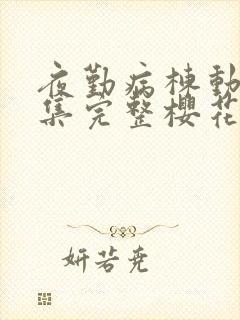 夜勤病棟動
集完整櫻花
妍若尭